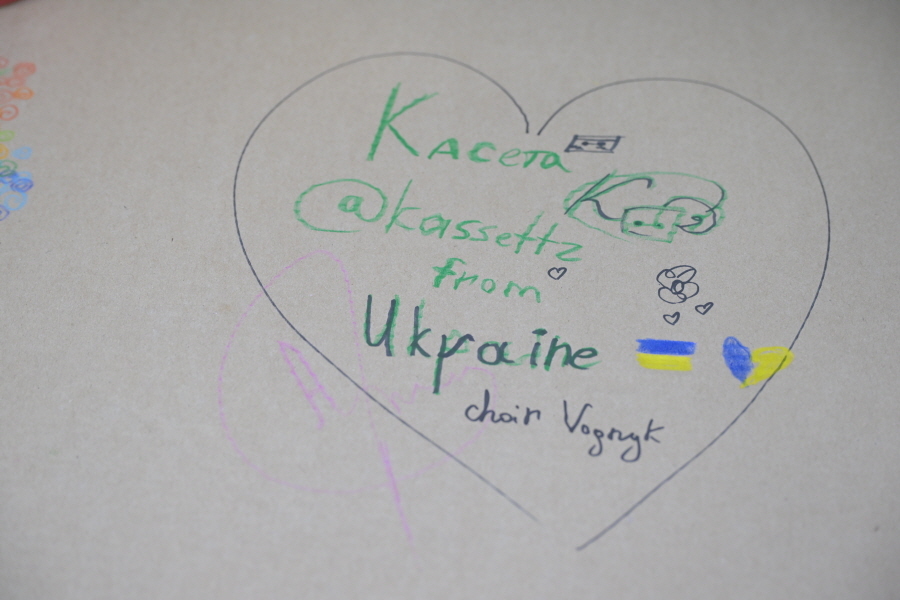 Касета
@kassettz
from
Ukraine
choir Vognyk